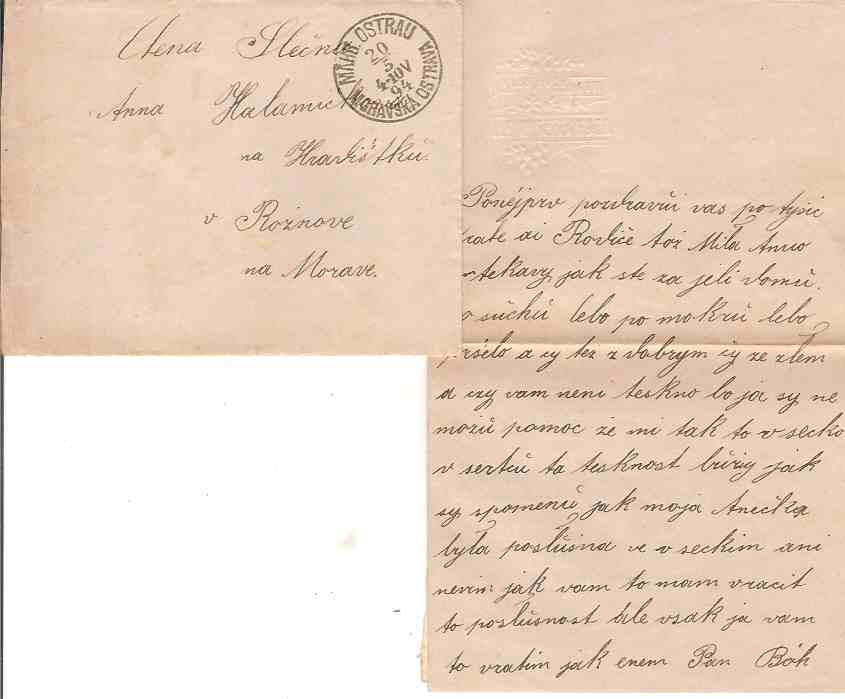 Ctena Slečna
Anna
na Hradištků
v Rožnove
na Morave.
MÄHR. OSTRAU
20/5
4-10V
94
MORAVSKÁ OSTRAVA
Ponéjprv pozdravůi vas po tysic
ai Rodiče tož Mila Anno
jak ste za jeli domů.
sůchů lebo po mokrů lebo
a cy tez z dobrym cy ze zlem
a czy vam neni teskno bo ja sy ne
možů pomoc že mi tak to v secko
v sertců ta tesknost bůřy jak
sy spomenů jak moja Anečka
była poslůsna ve v seckim ani
nevim jak vam to mam vracit
to poslůsnost ale vsak ja vam
to vratim jak enem Pan Bóh